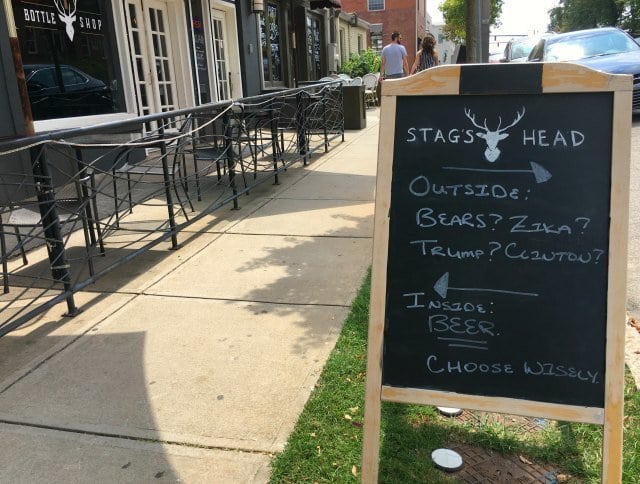 BOTTLE SHOP
STAG'S HEAD
OUTSIDE:
BEARS? ZIKA?
TRUMP? CLINTON?
INSIDE:
BEER.
CHOOSE WISELY.